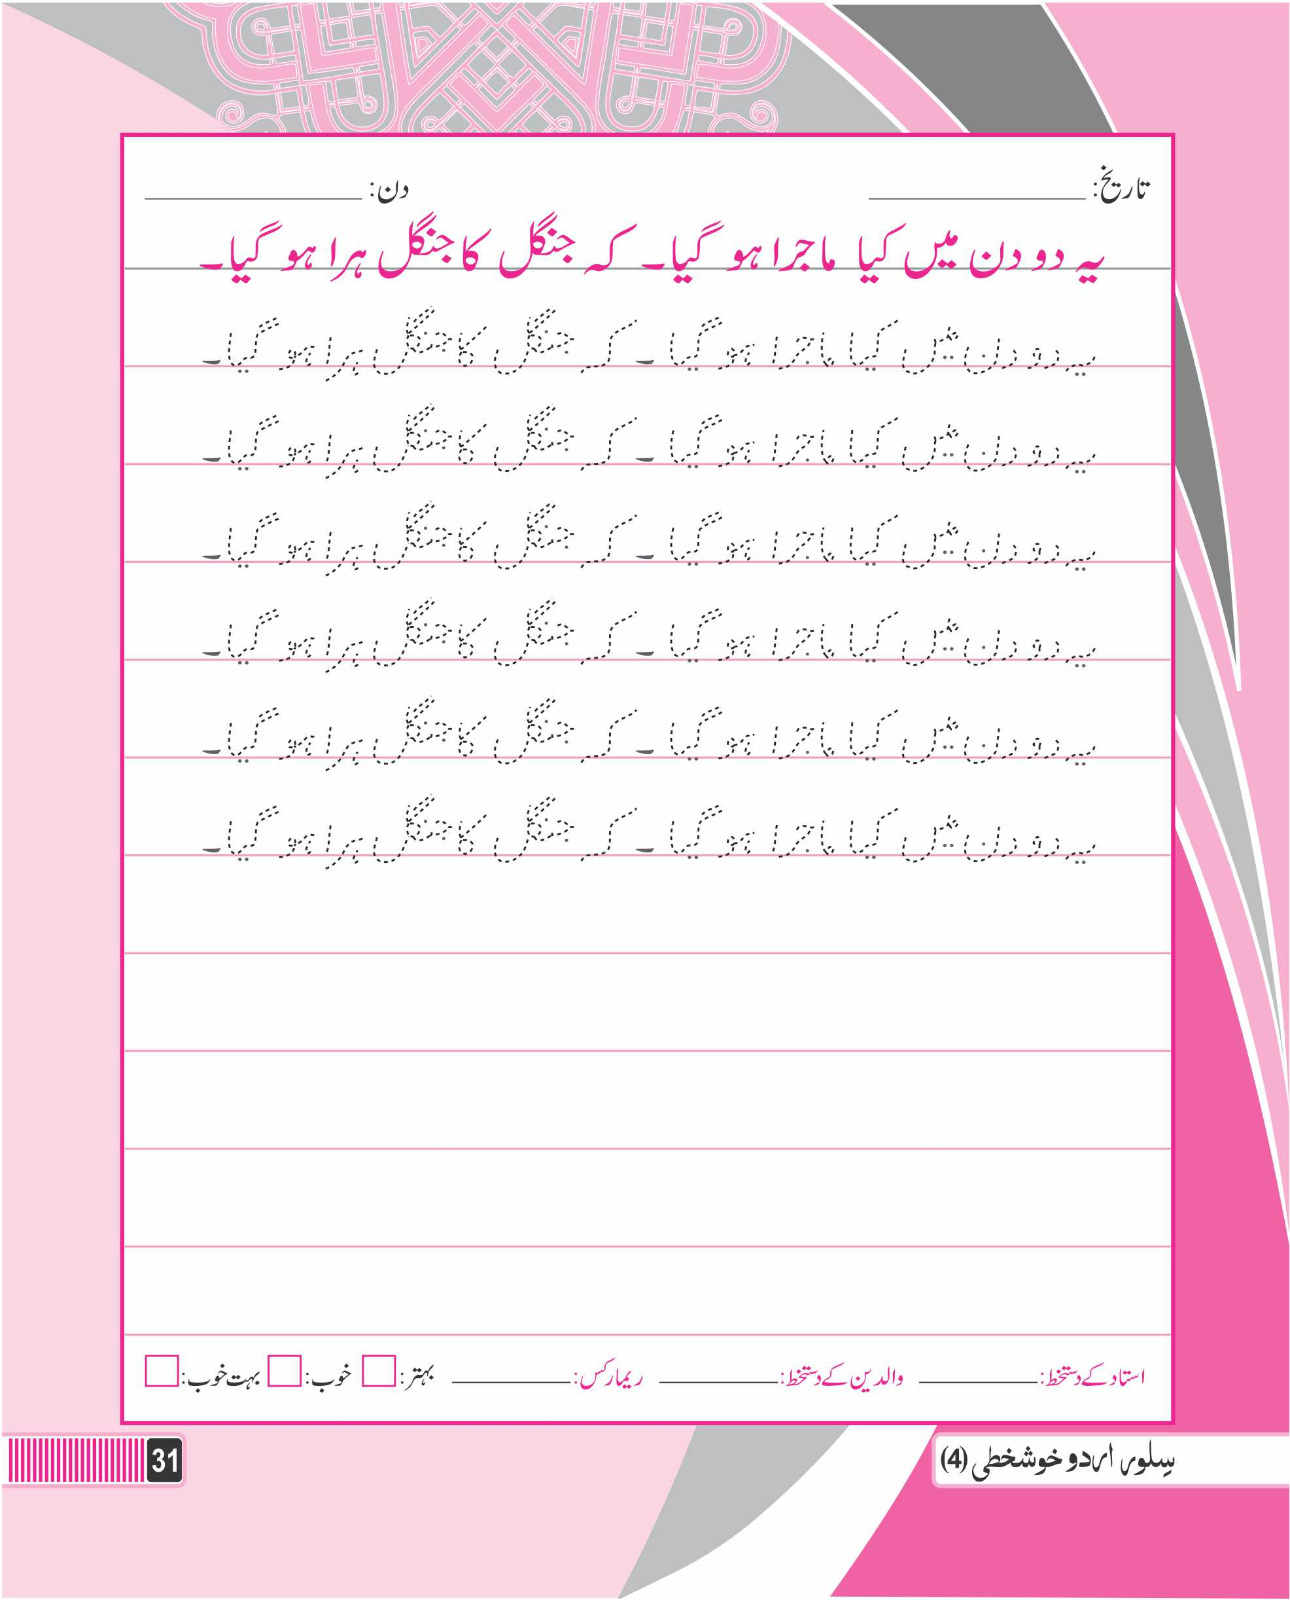 تاریخ: ____________ دن: ____________
یہ دو دن میں کیا ماجرا ہو گیا۔ کہ جنگل کا جنگل ہرا ہو گیا۔
یہ دو دن میں کیا ماجرا ہو گیا۔ کہ جنگل کا جنگل ہرا ہو گیا۔
یہ دو دن میں کیا ماجرا ہو گیا۔ کہ جنگل کا جنگل ہرا ہو گیا۔
یہ دو دن میں کیا ماجرا ہو گیا۔ کہ جنگل کا جنگل ہرا ہو گیا۔
یہ دو دن میں کیا ماجرا ہو گیا۔ کہ جنگل کا جنگل ہرا ہو گیا۔
یہ دو دن میں کیا ماجرا ہو گیا۔ کہ جنگل کا جنگل ہرا ہو گیا۔
یہ دو دن میں کیا ماجرا ہو گیا۔ کہ جنگل کا جنگل ہرا ہو گیا۔
استاد کے دستخط: ________ والدین کے دستخط: ________ ریمارکس: ________ بہتر: خوب: بہت خوب:
سِلور اردو خوشخطی (4)
31